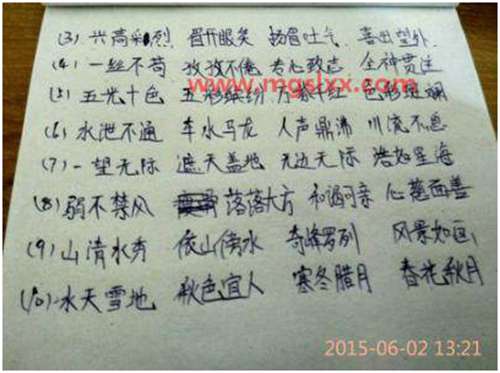 (3) 兴高采烈 眉开眼笑 扬眉吐气 喜出望外
(4) 一丝不苟 孜孜不倦 专心致志 全神贯注
www.mgslxx.com
(5) 五光十色 五彩缤纷 万紫千红 色彩斑斓
(6) 水泄不通 车水马龙 人声鼎沸 川流不息
(7) 一望无际 遮天盖地 无边无际 浩如星海
(8) 弱不禁风 落落大方 和谒可亲 心慈面善
(9) 山清水秀 依山傍水 奇峰罗列 风景如画
(10) 水天雪地 秋色宜人 寒冬腊月 春花秋月
2015-06-02 13:21